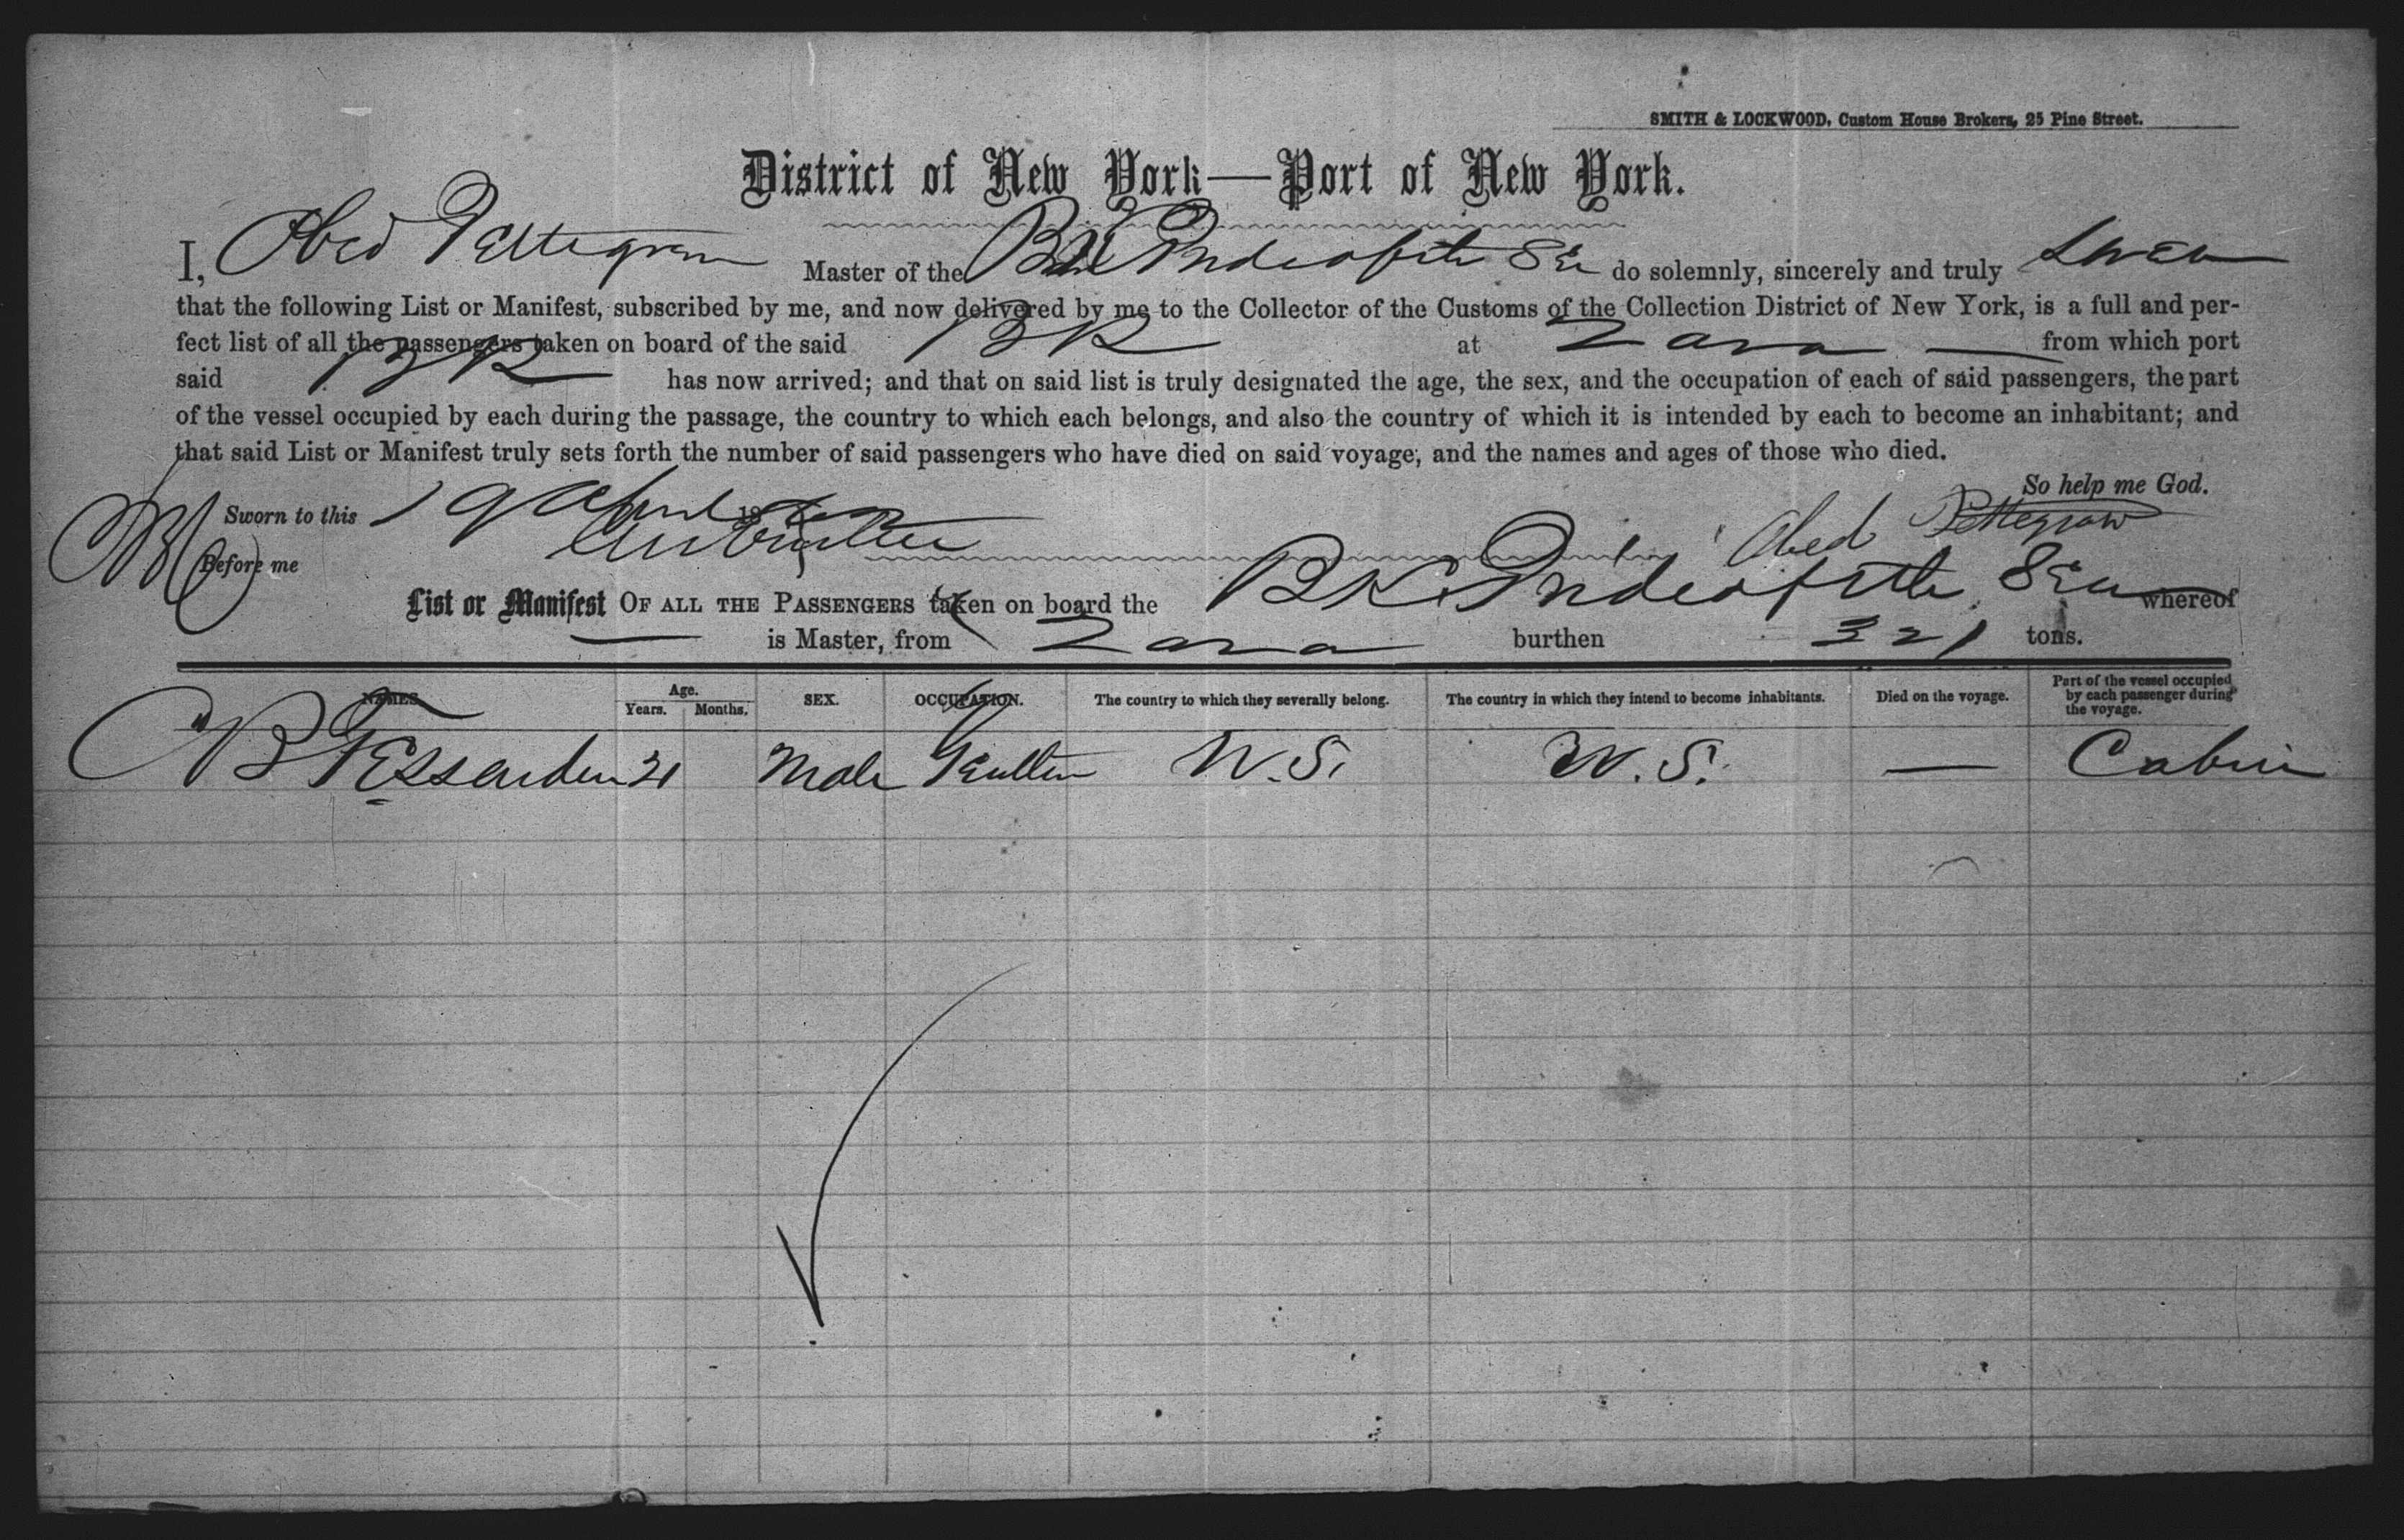 SMITH & LOCKWOOD, Custom House Brokers, 25 Pine Street.
District of New York—Port of New York.
I, Obed Pettegrew Master of the Bk do solemnly, sincerely and truly swear
that the following List or Manifest, subscribed by me, and now delivered by me to the Collector of the Customs of the Collection District of New York, is a full and per-
fect list of all the passengers taken on board of the said BK at Zara — from which port
said BK has now arrived; and that on said list is truly designated the age, the sex, and the occupation of each of said passengers, the part
of the vessel occupied by each during the passage, the country to which each belongs, and also the country of which it is intended by each to become an inhabitant; and
that said List or Manifest truly sets forth the number of said passengers who have died on said voyage, and the names and ages of those who died.
So help me God.
Sworn to this 19 April 18
Obed Pettegrow
Before me
List or Manifest OF ALL THE PASSENGERS taken on board the BK whereof
— is Master, from Zara burthen 321 tons.
NAMES. Age. Years. Months. SEX. OCCUPATION. The country to which they severally belong. The country in which they intend to become inhabitants. Died on the voyage. Part of the vessel occupied by each passenger during the voyage.
B Fessenden 21 Male U.S. U.S. — Cabin